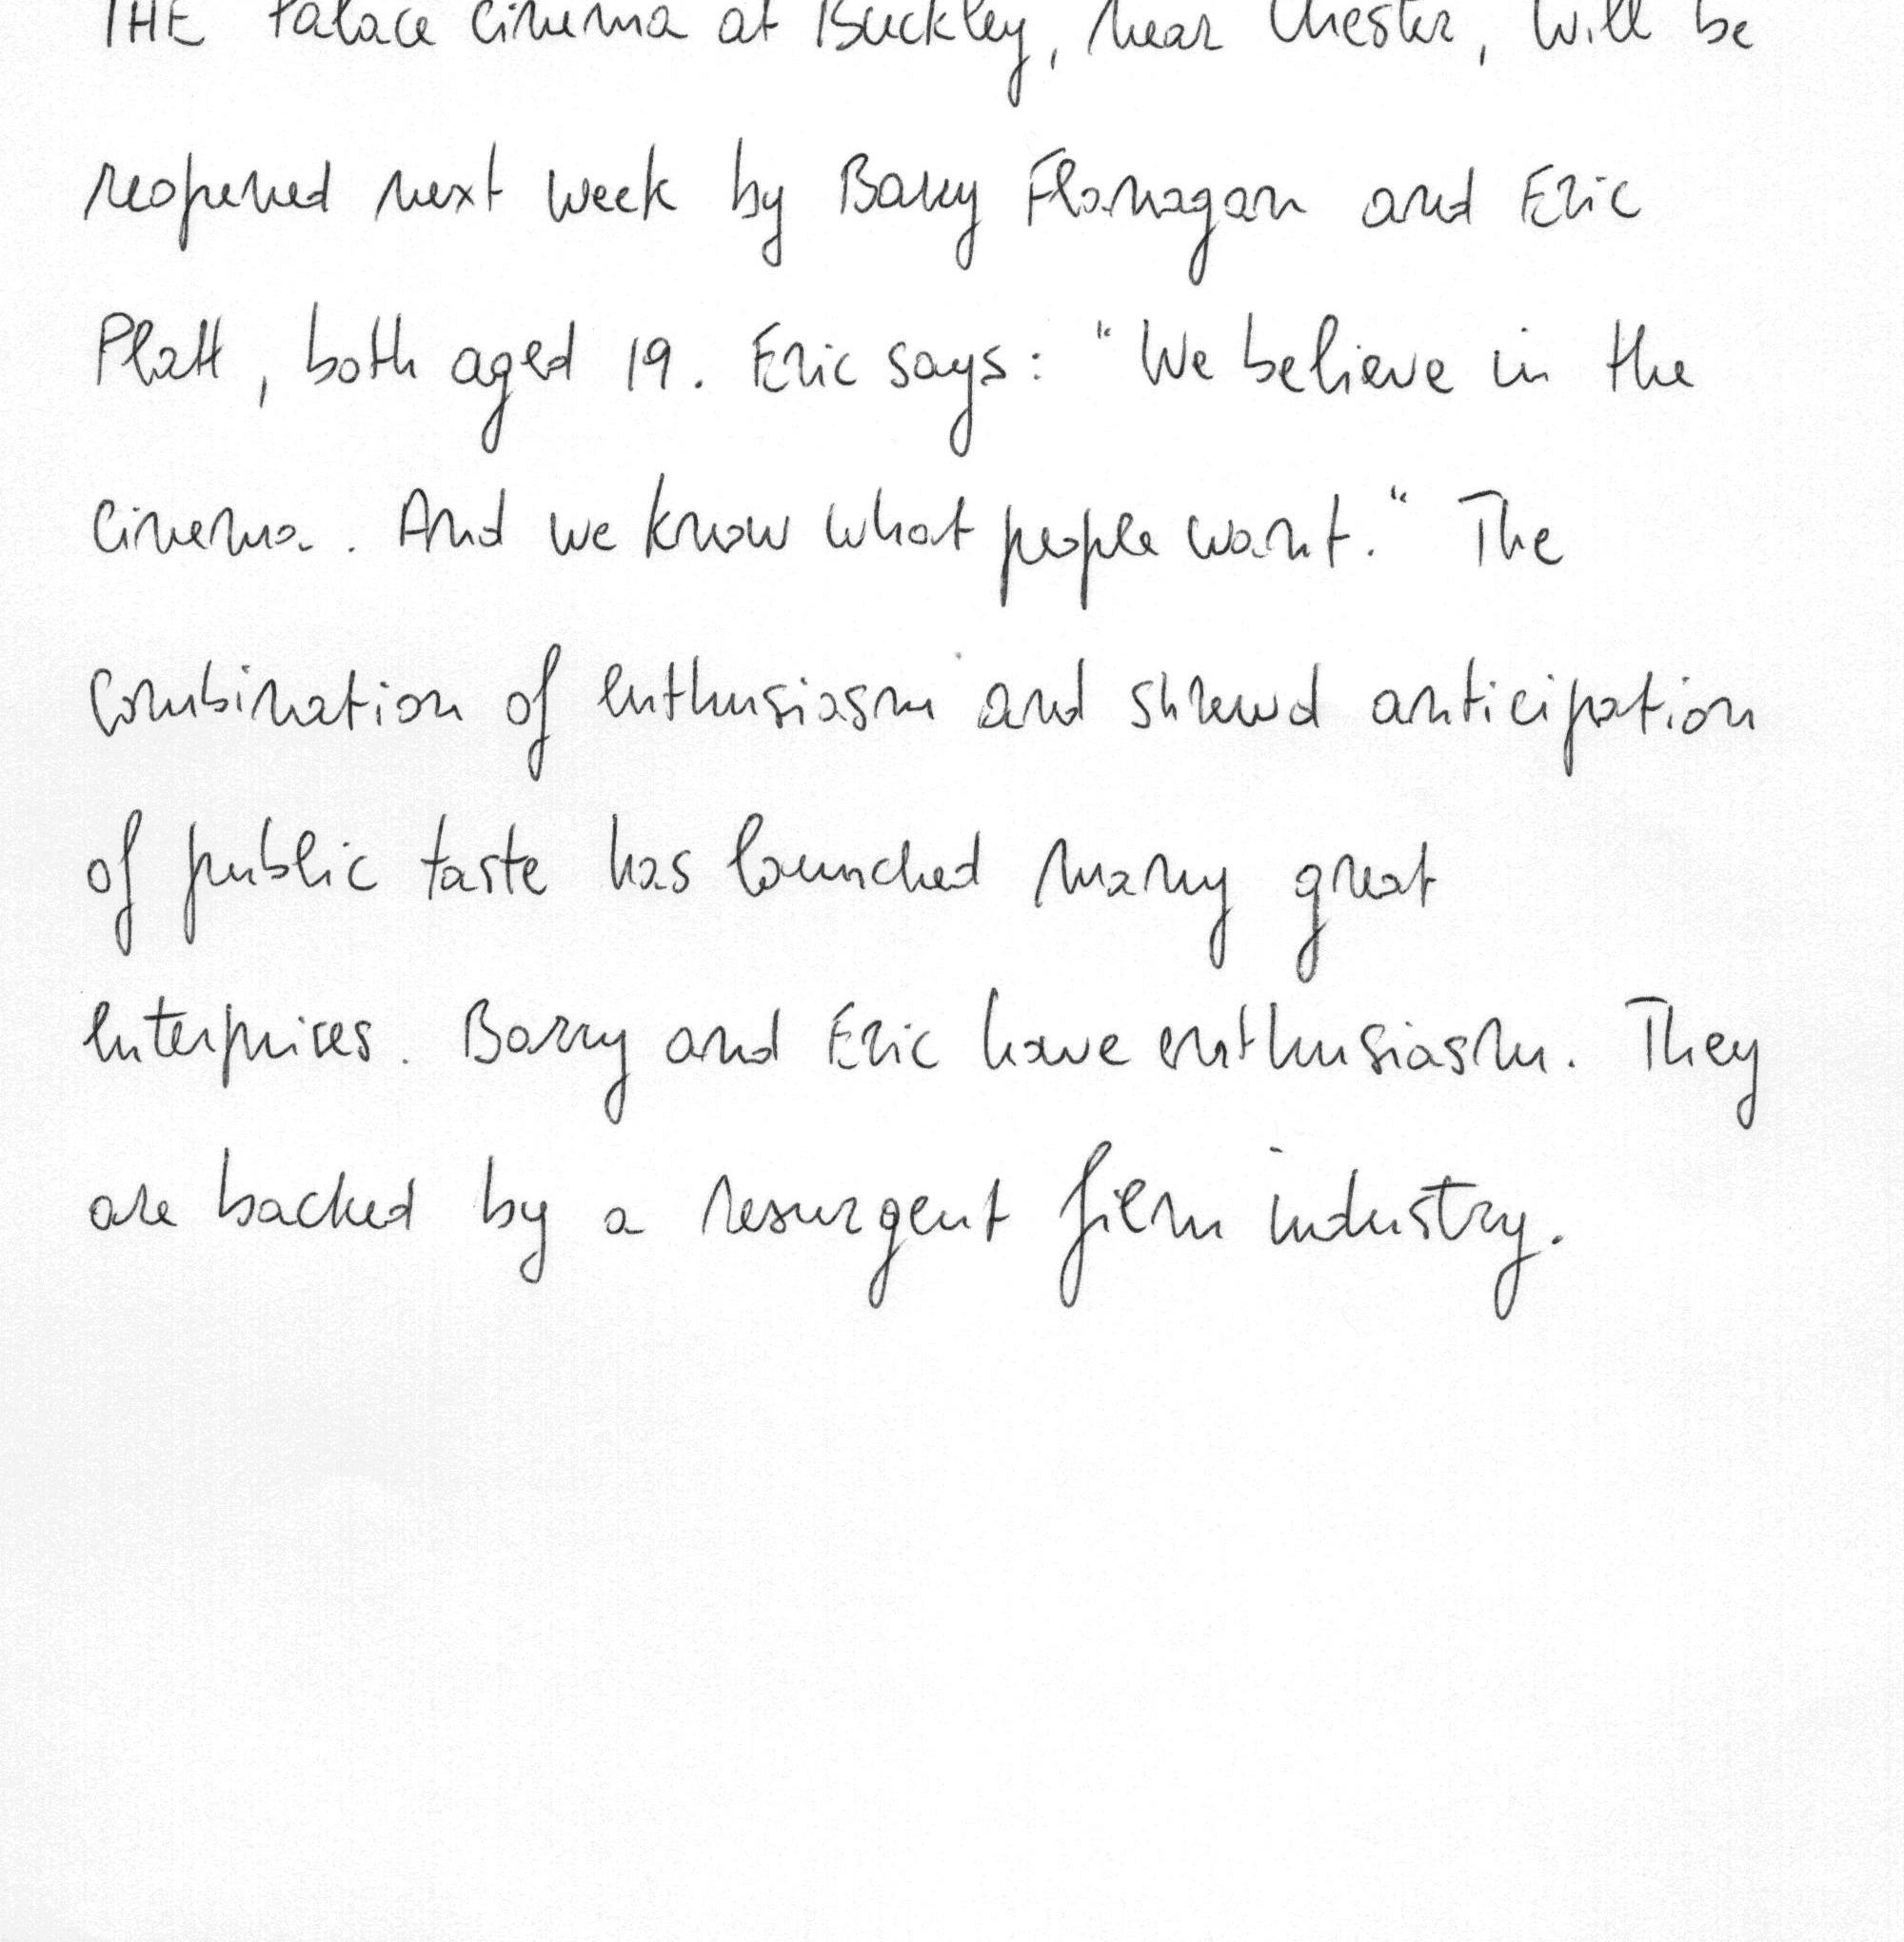 THE Palace Cinema at Buckley, near Chester, will be
reopened next week by Barry Flanagan and Eric
Platt, both aged 19. Eric says: "We believe in the
Cinema. And we know what people want." The
combination of enthusiasm and shrewd anticipation
of public taste has launched many great
enterprises. Barry and Eric have enthusiasm. They
are backed by a resurgent film industry.